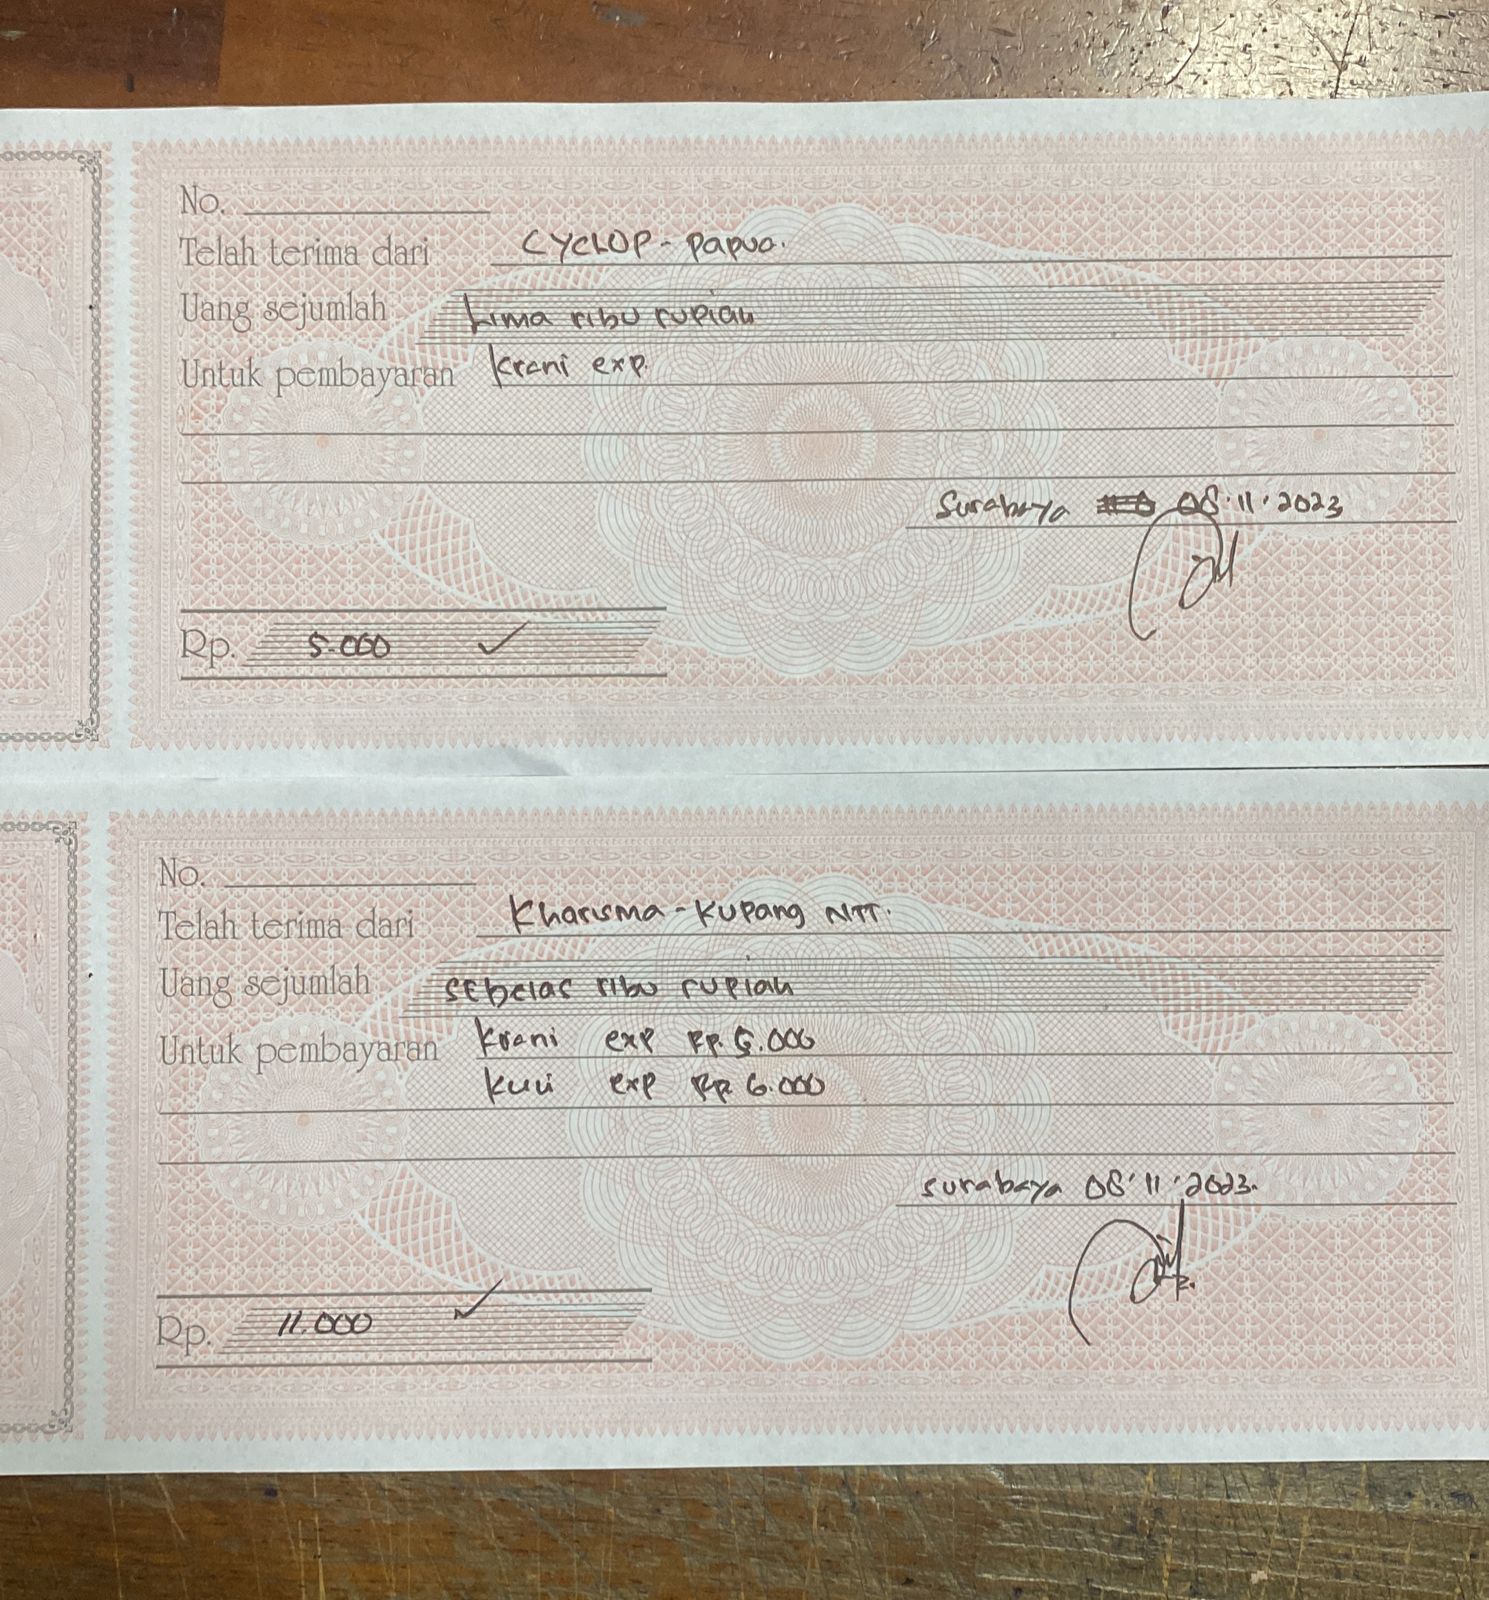 No.
Telah terima dari CYCLOP - Papua.
Uang sejumlah Lima ribu rupiah
Untuk pembayaran Krani exp.
Surabaya 08.11.2023
Rp. 5.000
No.
Telah terima dari Kharisma - Kupang NTT.
Uang sejumlah sebelas ribu rupiah
Untuk pembayaran Krani exp Rp. 5.000
Kuli exp Rp 6.000
Surabaya 08.11.2023.
Rp. 11.000